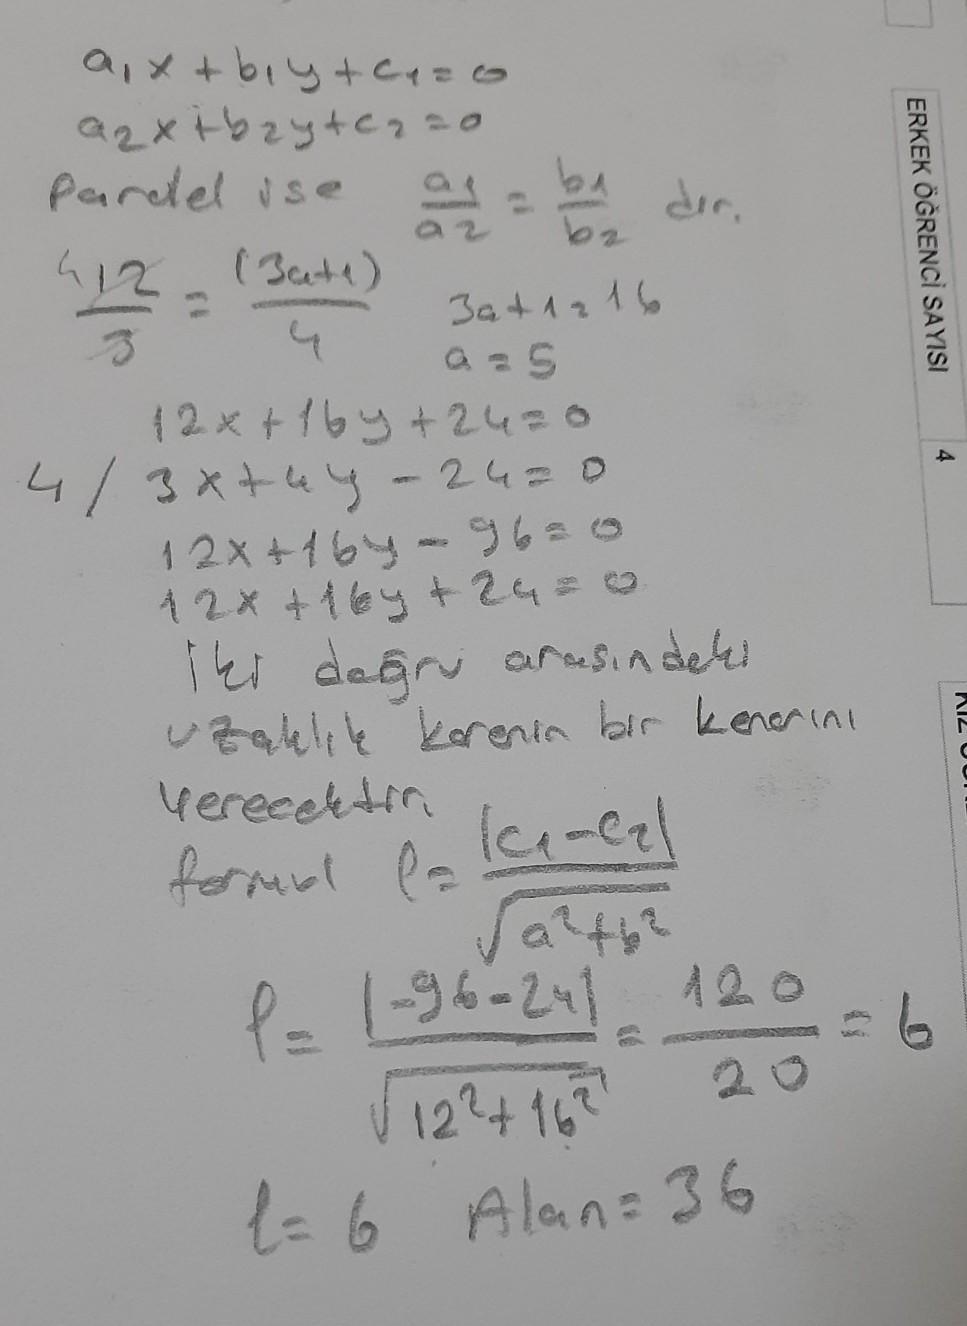 a₁x + b₁y + c₁ = 0
a₂x + b₂y + c₂ = 0
Paralel ise a₁/a₂ = b₁/b₂ dır.
4 12/3 = (3a+1)/4 3a+1=16
a = 5
12x + 16y + 24 = 0
4 / 3x + 4y - 24 = 0
12x + 16y - 96 = 0
12x + 16y + 24 = 0
İki doğru arasındaki
uzaklık karenin bir kenarını
verecektir.
formül l = |c₁ - c₂| / √(a² + b²)
l = |-96 - 24| / √(12² + 16²) = 120/20 = 6
l = 6 Alan = 36
ERKEK ÖĞRENCİ SAYISI 4